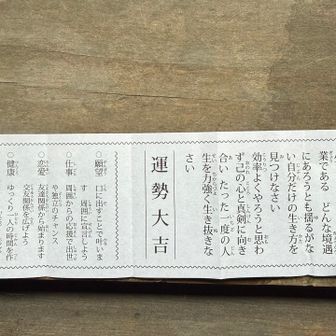 業であり、どんな境遇
にあろうとも揺るがな
い自分だけの生き方を
見つけなさい
効率よくやろうと思わ
ず己の心と真剣に向き
合いたった一度の人
生を力強く生き抜きな
さい
運勢大吉
○願望 口に出すことで叶いま
す 周囲に宣言しよう
○仕事 周囲からの応援で出世
や独立のチャンス
○恋愛 友達関係から始まります
交友関係を広げよう
○健康 ゆっくり一人の時間を作